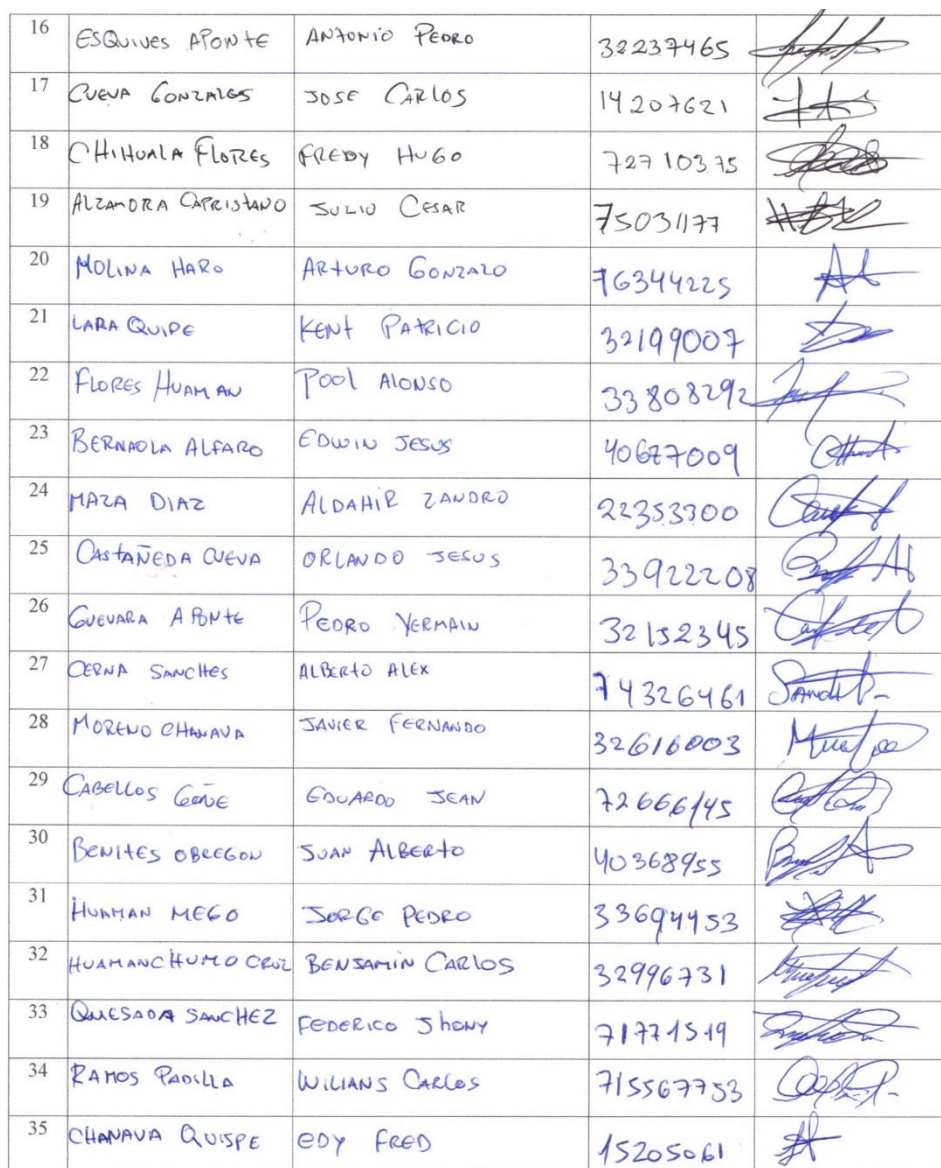 16 ESQUIVES APONTE ANTONIO PEDRO 32237465
17 CUEVA GONZALES JOSE CARLOS 14207621
18 CHIHUALA FLORES FREDY HUGO 72710375
19 ALZAMORA CAPRISTANO JULIO CESAR 75031177
20 MOLINA HARO ARTURO GONZALO 76344225
21 LARA QUIPE KENT PATRICIO 32199007
22 FLORES HUAMAN POOL ALONSO 33808292
23 BERNAOLA ALFARO EDWIN JESUS 40677009
24 MAZA DIAZ ALDAHIR ZANDRO 22353300
25 CASTAÑEDA CUEVA ORLANDO JESUS 33922208
26 GUEVARA APONTE PEDRO YERMAIN 32152345
27 CERNA SANCHES ALBERTO ALEX 74326461
28 MORENO CHANAVA JAVIER FERNANDO 32616003
29 CABELLOS GOÑE EDUARDO JEAN 72666145
30 BENITES OBREGON JUAN ALBERTO 40368955
31 HUAMAN MEGO JORGE PEDRO 33694453
32 HUAMANCHUMO CRUZ BENJAMIN CARLOS 32996731
33 QUESADA SANCHEZ FEDERICO JHONY 71771519
34 RAMOS PADILLA WILIANS CARLOS 715567753
35 CHANAVA QUISPE EDY FRED 15205061